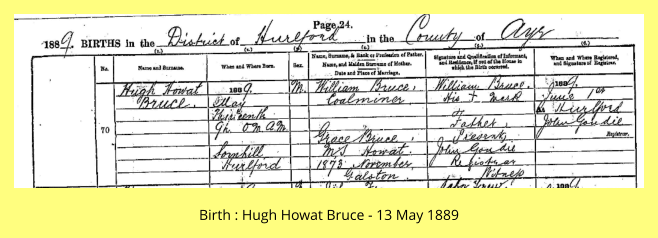 Page 24.
1889. BIRTHS in the District of Hurlford in the County of Ayr
No. Name and Surname. When and Where Born. Sex. Name, Surname, & Rank or Profession of Father. Name, and Maiden Surname of Mother. Date and Place of Marriage. Signature and Qualification of Informant, and Residence, if out of the House in which the Birth occurred. When and Where Registered, and Signature of Registrar.
70
Hugh Howat
Bruce
1889
May
Thirteenth
9h 0m A.M.
Hurlford
M
William Bruce,
Coalminer
Grace Bruce,
M.S. Howat
1873 November
Galston
William Bruce,
His X Mark
Father
Present
John Goudie
Registrar
Witness
1889
June 1st
At Hurlford
John Goudie
Registrar.
Birth : Hugh Howat Bruce - 13 May 1889